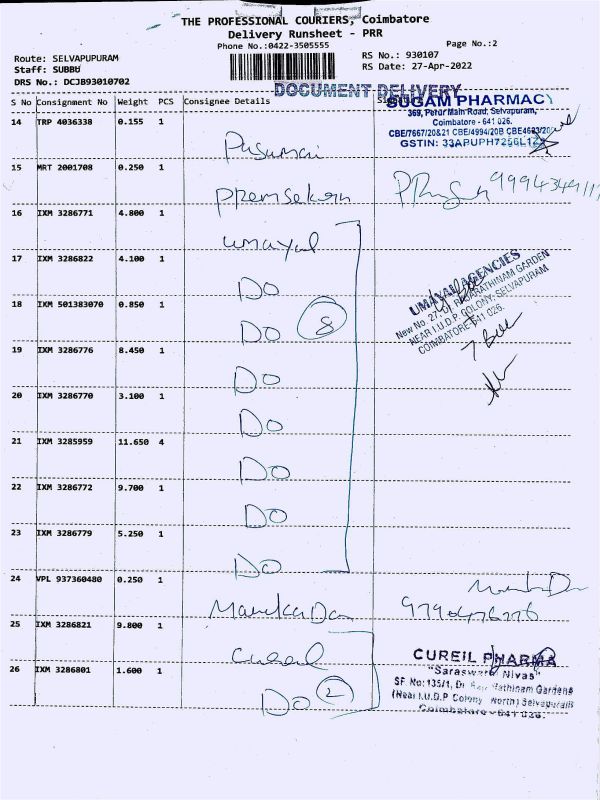 THE PROFESSIONAL COURIERS, Coimbatore
Delivery Runsheet - PRR
Phone No.:0422-3505555
Page No.:2
Route: SELVAPUPURAM
RS No.: 930107
Staff: SUBBU
RS Date: 27-Apr-2022
DRS No.: DCJB93010702
DOCUMENT DELIVERY
S No Consignment No Weight PCS Consignee Details
SUGAM PHARMACY
369, Perur Main Road, Selvapuram,
Coimbatore - 641 026.
CBE/7667/20&21 CBE/4994/20B
GSTIN: 33APUPH7256L1
14 TRP 4036338 0.155 1
Pasumai
15 MRT 2001708 0.250 1
Premsekar
16 IXM 3286771 4.800 1
umayal
17 IXM 3286822 4.100 1
DO
UMAYAL AGENCIES
RATHINAM GARDEN
NEAR I.U.D.P. COLONY, SELVAPURAM
COIMBATORE 641 026.
18 IXM 501383070 0.850 1
DO 8
19 IXM 3286776 8.450 1
DO
20 IXM 3286770 3.100 1
DO
21 IXM 3285959 11.650 4
DO
22 IXM 3286772 9.700 1
DO
23 IXM 3286779 5.250 1
DO
24 VPL 937360480 0.250 1
25 IXM 3286821 9.800 1
Cureil
CUREIL PHARMA
"Saraswathi Nivas"
SF No: 135/1, Rathinam Gardens
(Near I.U.D.P Colony North) Selvapuram
Coimbatore - 641 026.
26 IXM 3286801 1.600 1
DO 2